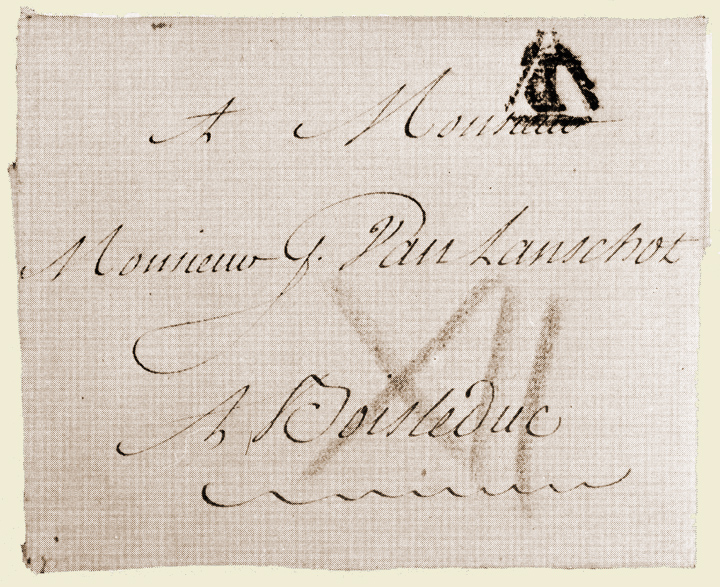 A Monsieur
Monsieur G. Van Lanschot
XII
A Boisleduc